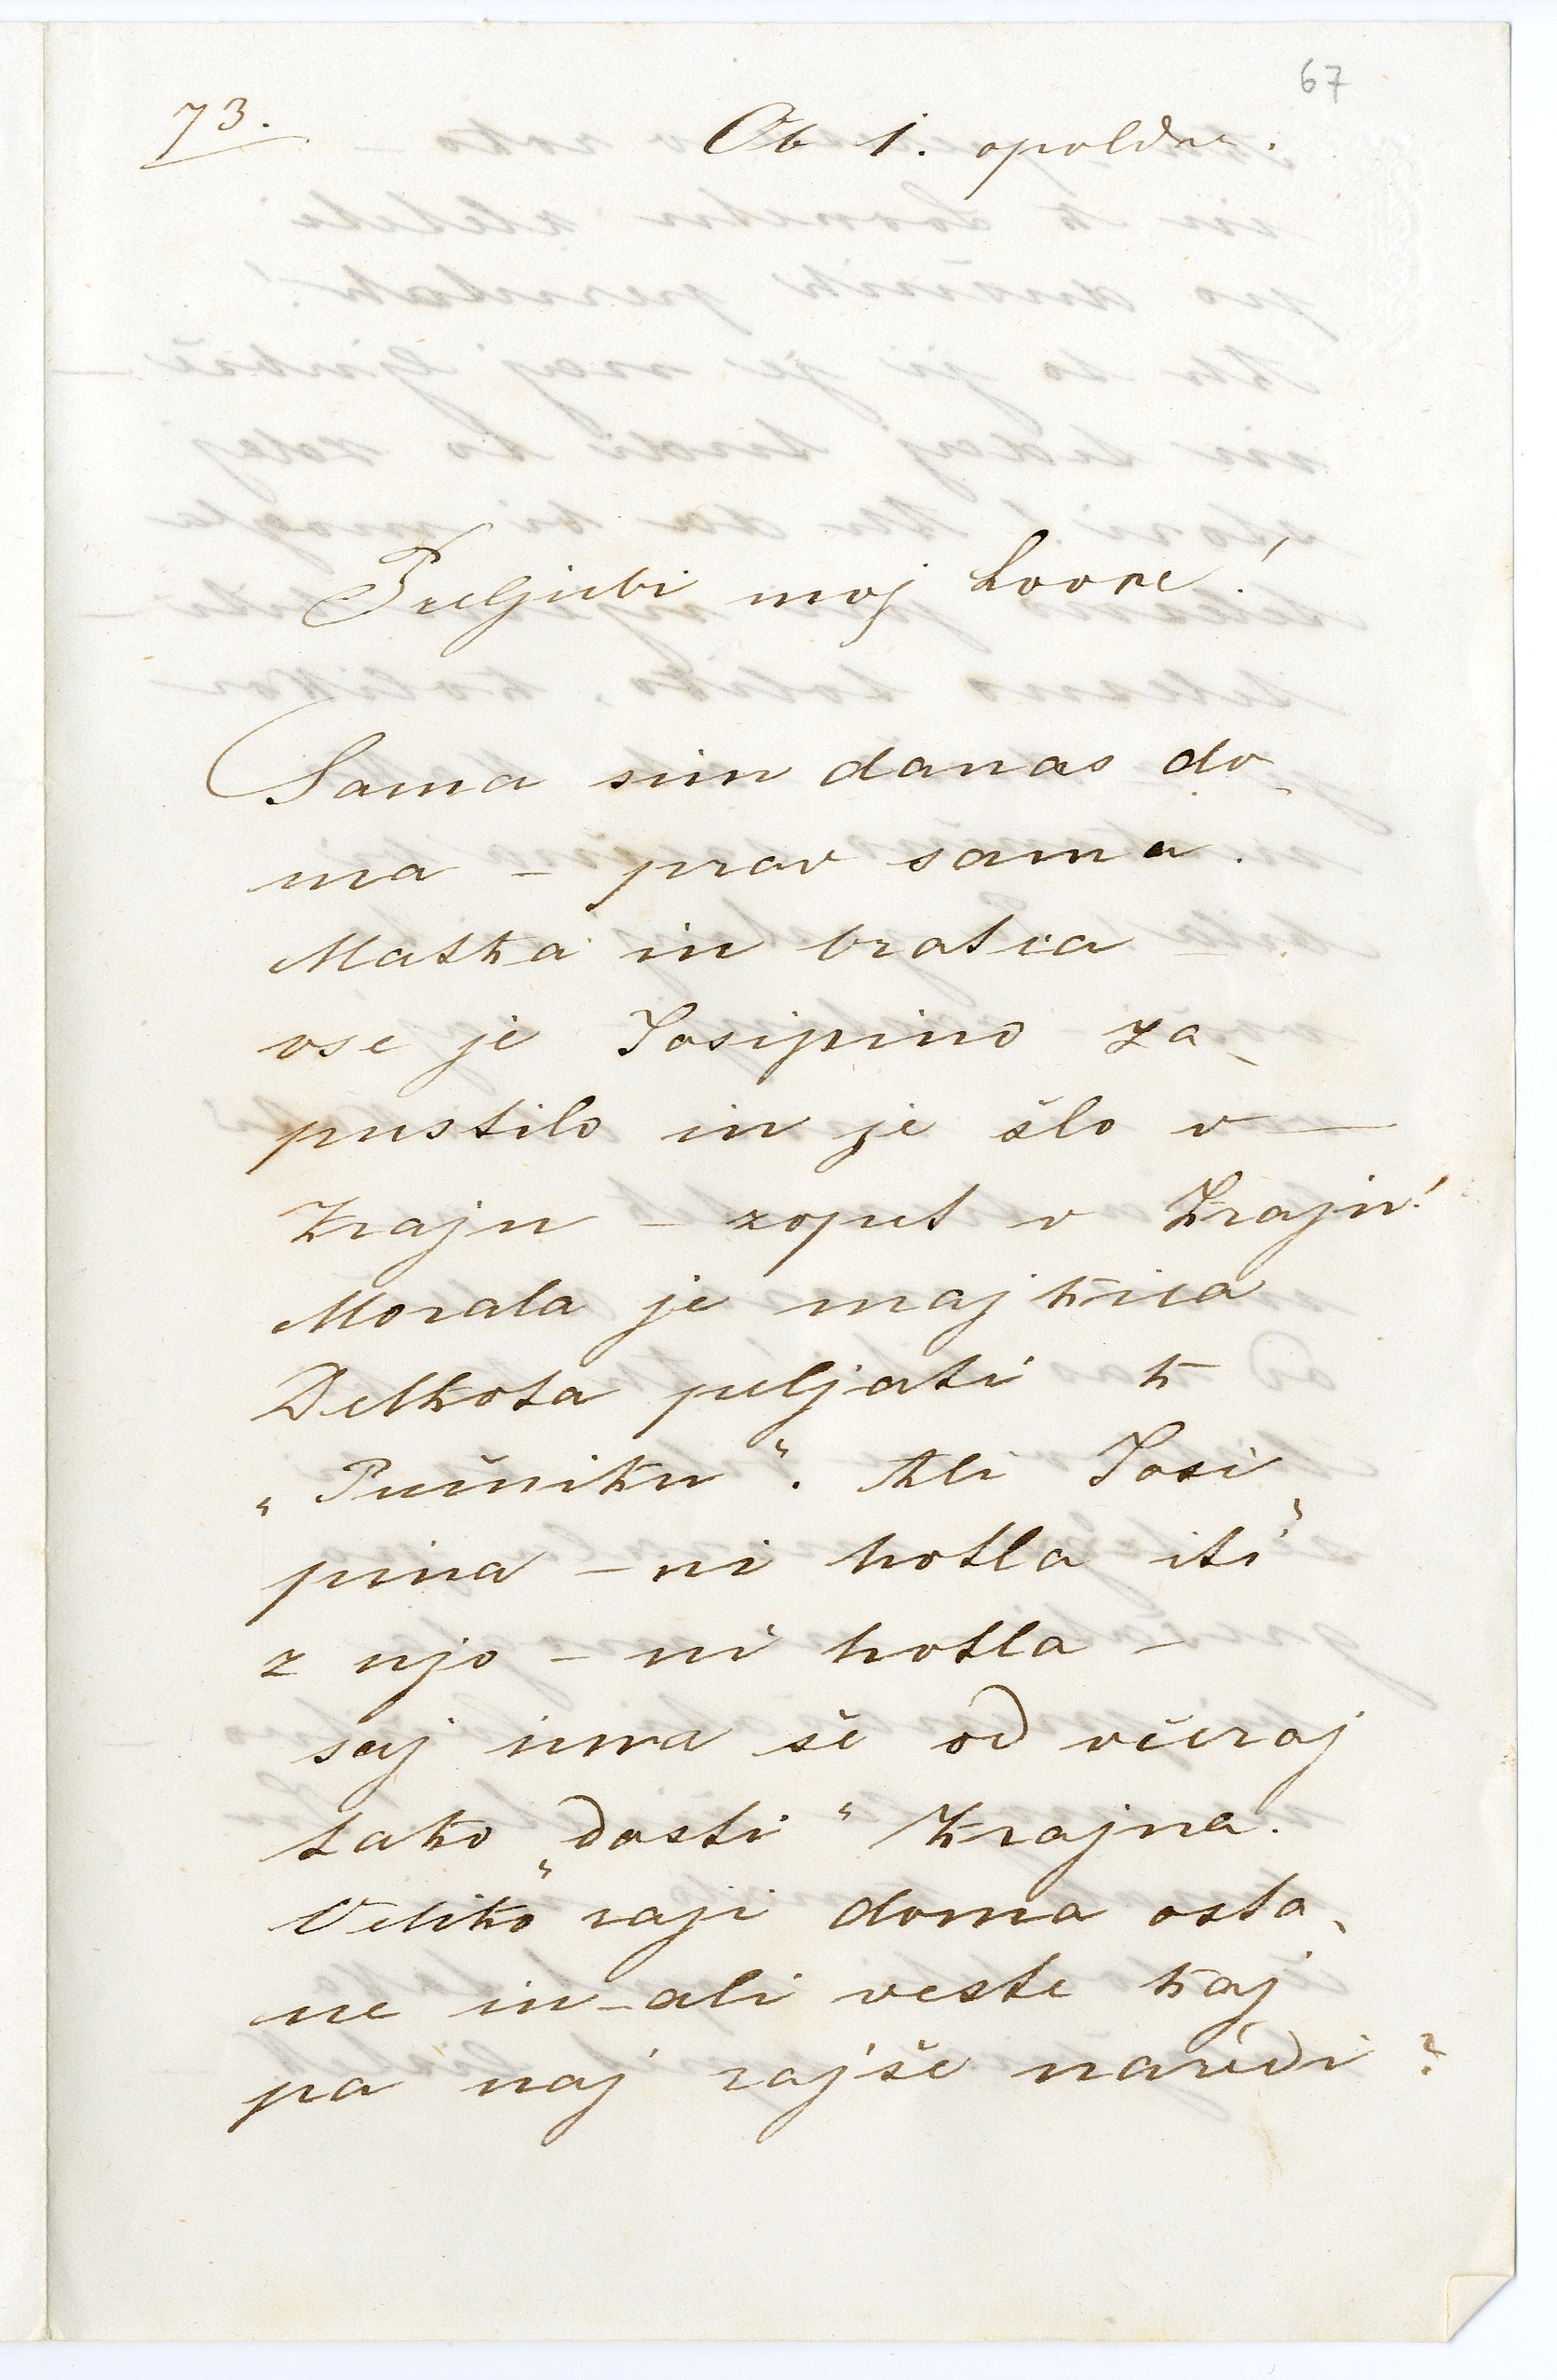 67
73.
Ob 1. opoldne.
Preljubi moj Lovre!
Sama sim danas do-
ma – prav sama.
Matka in bratca –
vse je Josipino za-
pustilo in je šlo v –
Krajn – zopet v Krajn!
Morala je majkica
Delkota peljati k
„Pučniku“. Ali Josi-
pina – ni hotla iti
z njo – ni hotla –
saj ima še od včeraj
tako „dosti“ Krajna.
Veliko raji doma osta-
ne in – ali veste kaj
pa naj rajše naredi?